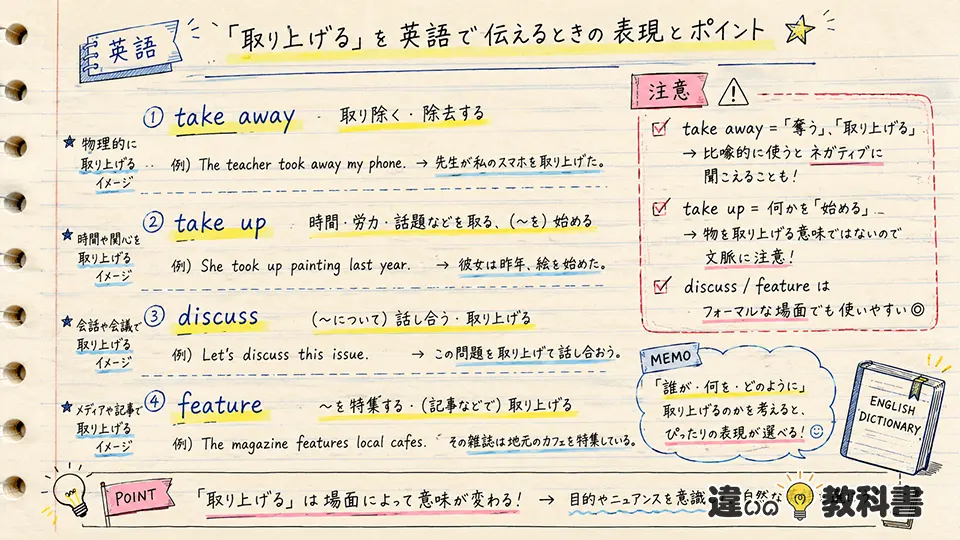 英語
「取り上げる」を英語で伝えるときの表現とポイント
① take away ・ 取り除く・除去する
★ 物理的に
取り上げる
イメージ
例) The teacher took away my phone. → 先生が私のスマホを取り上げた。
② take up 時間・労力・話題などを取る、(〜を) 始める
★ 時間や関心を
取り上げる
イメージ
例) She took up painting last year. → 彼女は昨年、絵を始めた。
③ discuss (〜について) 話し合う・取り上げる
★ 会話や会議で
取り上げる
イメージ
例) Let's discuss this issue. → この問題を取り上げて話し合おう。
④ feature 〜を特集する・(記事などで) 取り上げる
★ メディアや記事で
取り上げる
イメージ
例) The magazine features local cafes. その雑誌は地元のカフェを特集している。
注意
take away =「奪う」、「取り上げる」
→ 比喩的に使うと ネガティブに
聞こえることも!
take up = 何かを「始める」
→ 物を取り上げる意味ではないので
文脈に注意!
discuss / feature は
フォーマルな場面でも使いやすい◎
MEMO
「誰が・何を・どのように」
取り上げるのかを考えると、
ぴったりの表現が選べる!
ENGLISH
DICTIONARY
POINT
「取り上げる」は場面によって意味が変わる! → 目的やニュアンスを意識 自然な
違いの教科書